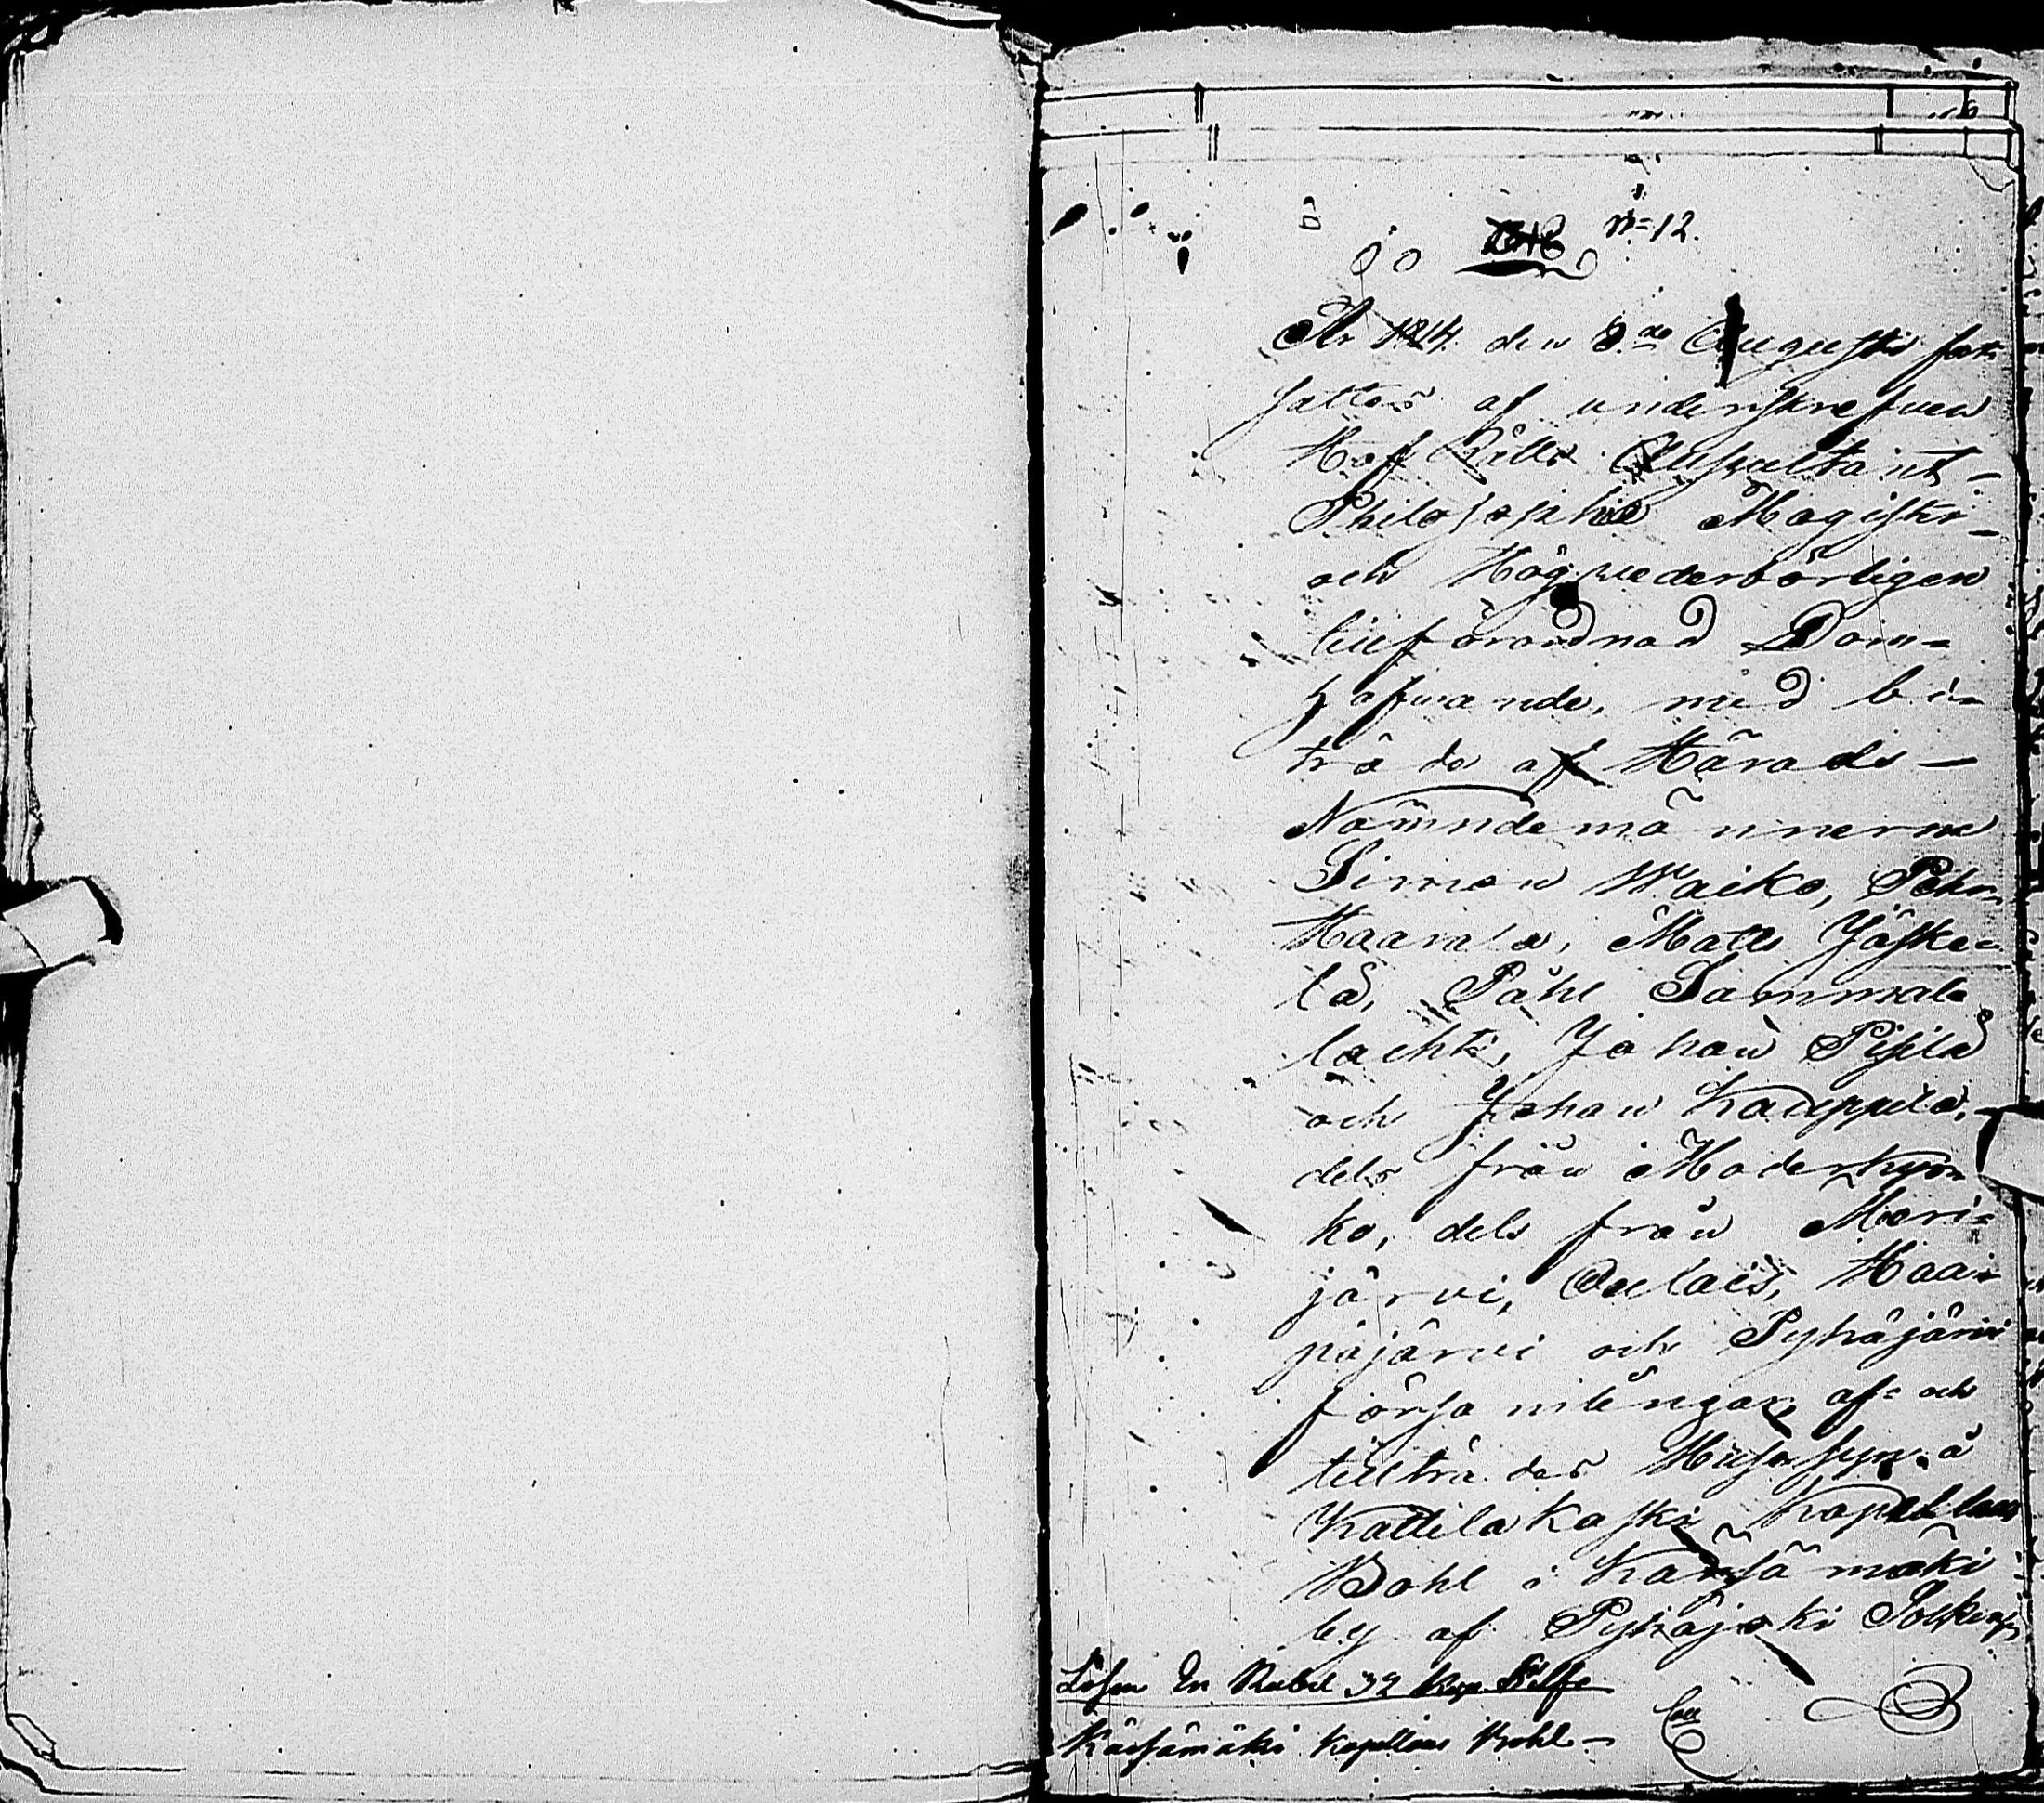 N:12.
År 1814. den 8.de Augusti för-
fattes af underskrefven
Hof Rätts Auscultant-
Philosophiæ Magister-
och Högvederbörligen
tillförordnad Dom-
hafwande, med bi-
träde af Härads-
Nämndemännerne
Simon Waiko, Pehr
Haarala, Matts Jäske-
lä, Påhl Sammal-
lachti, Johan Pipila
och Johan Kauppila,
dels från Moderkyr-
ko, dels från Meri-
järvi, Oulais, Haa-
pajärvi och Pyhäjärvi
församlingar, af- och
tillträdes Husesyn å
Kattilakoski Kapellans
Bohl i Kärsämäki
by af Pyhäjoki Sokn
Lösen En Rubel 32 Kop Silfr
Kärsämäki Kapellans Bohl-